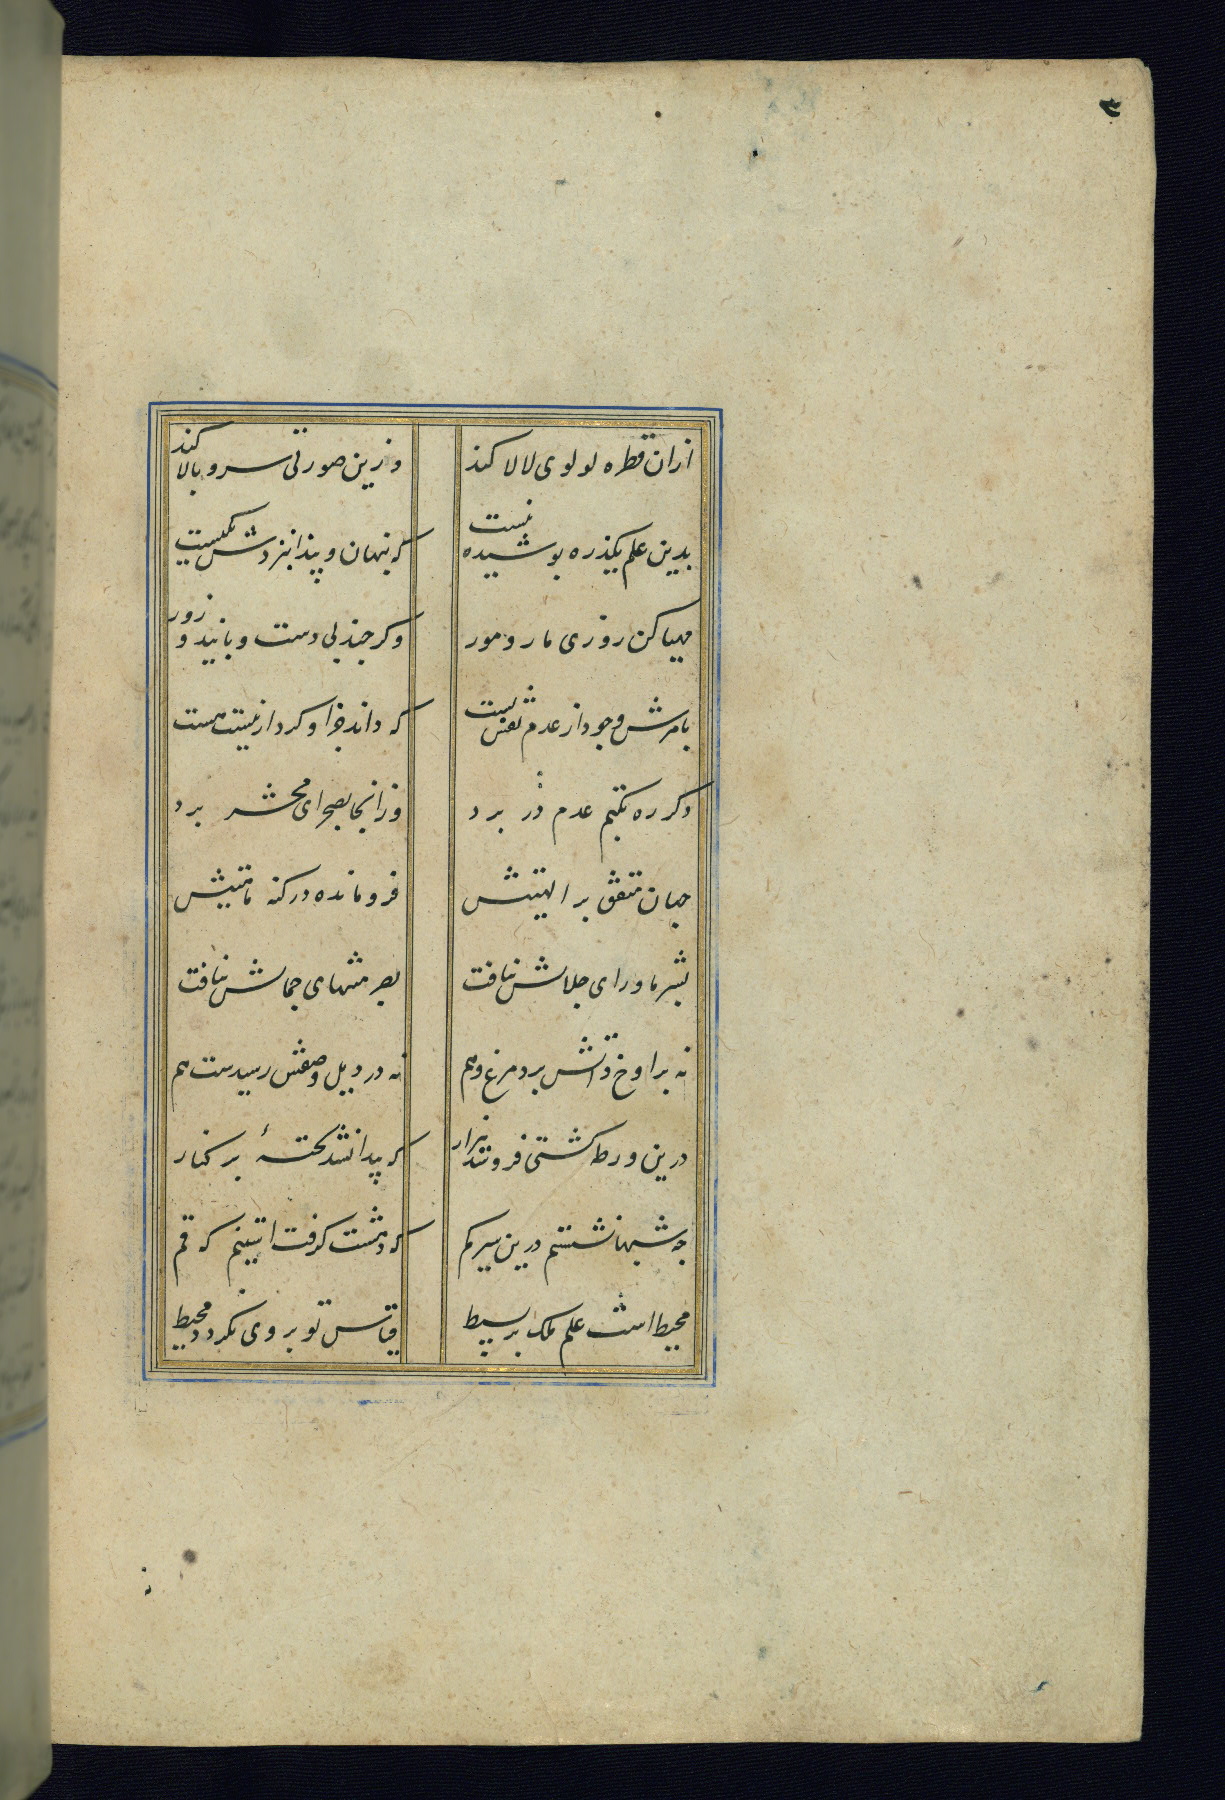 ازان قطره لولوی لالا کند وزین صورتی سرو بالا کند
بدین علم یکذره پوشیده نیست که پنهان و پیدا بنزدش یکیست
مهیا کن روزی مار و مور وکر چند بی دست و پایند و زور
بامرش وجود از عدم نقش بست که داند جز او کرد از نیست هست
دکر ره بکتم عدم در برد وز انجا بصحرای محشر برد
جهان متفق بر الهیتش فرومانده در کنه ماهیتش
بشر ماورای جلالش نیافت بصر منتهای جمالش نیافت
نه بر اوج ذاتش برد مرغ وهم نه در ذیل وصفش رسد دست فهم
درین ورطه کشتی فروشد هزار که پیدا نشد تختهٔ بر کنار
چه شبها نشستم درین سیر کم که دهشت کرفت استینم که قم
محیط است علم ملک بر بسیط قیاس تو بر وی نکردد محیط
نه